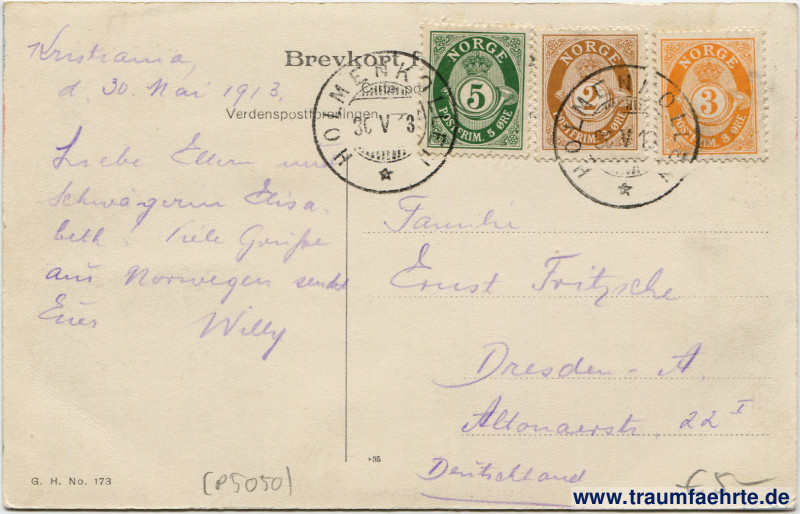 Kristiania,
d. 30. Mai 1913.
Brevkort f
Verdenspostforeningen
Liebe Eltern und
Schwägerin Elisa-
beth. Viele Grüße
aus Norwegen sendet
Euer Willy
NORGE
5
POSTFRIM. 5 ØRE
NORGE
2
POSTFRIM. 2 ØRE
NORGE
3
POSTFRIM. 3 ØRE
HOLMENKOLLEN
30 V 13
HOLMENKOLLEN
V 13
Familie
Ernst Fritzsche
Dresden-A.
Altonaerstr. 22 I
Deutschland
G. H. No. 173
(P5050)
www.traumfaehrte.de